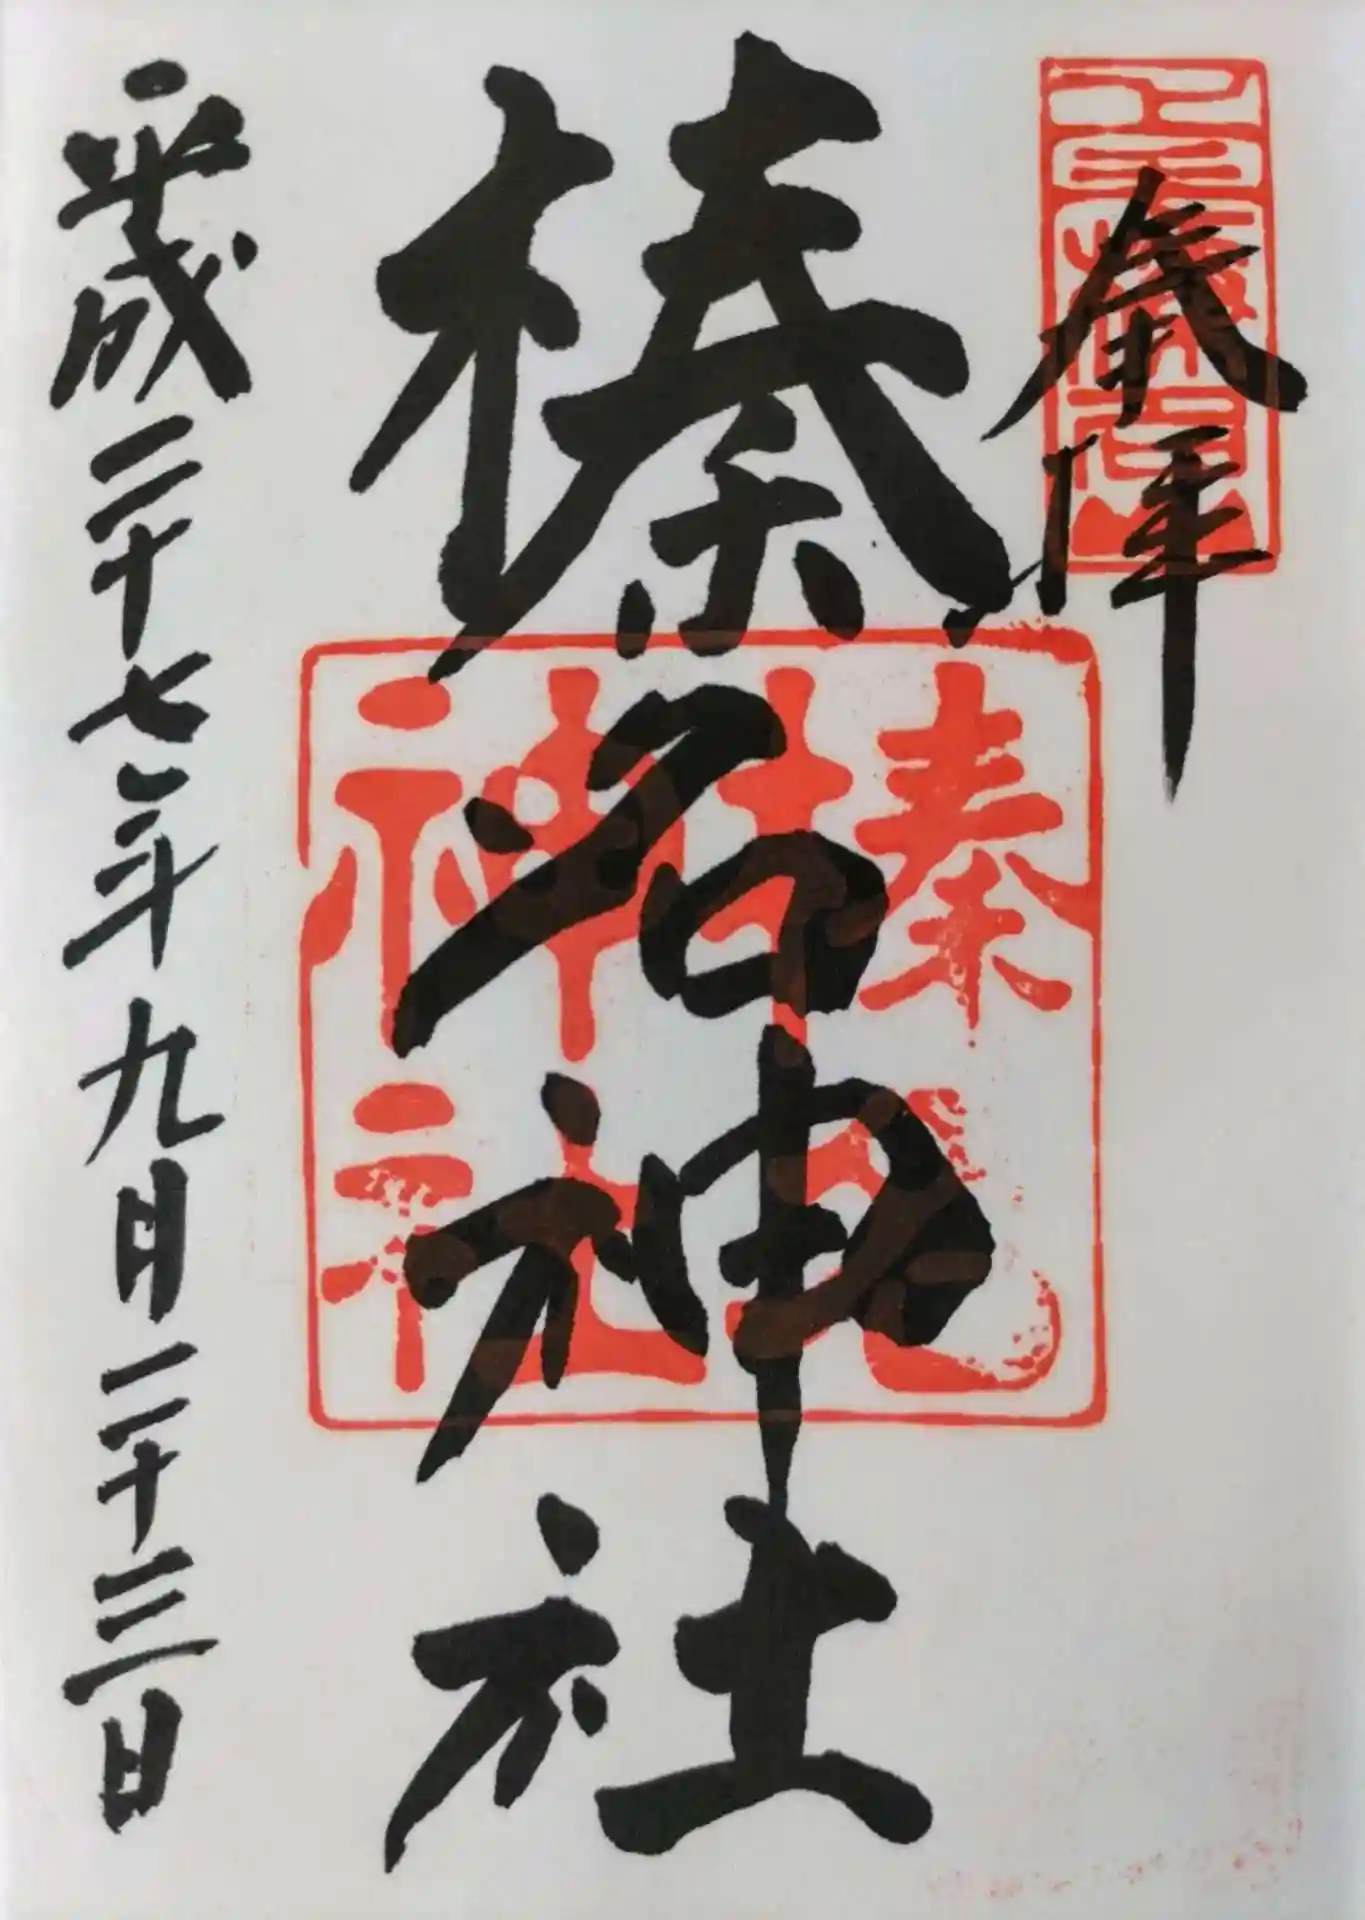 奉拝
榛名神社
榛名
神社
平成二十七年九月二十三日